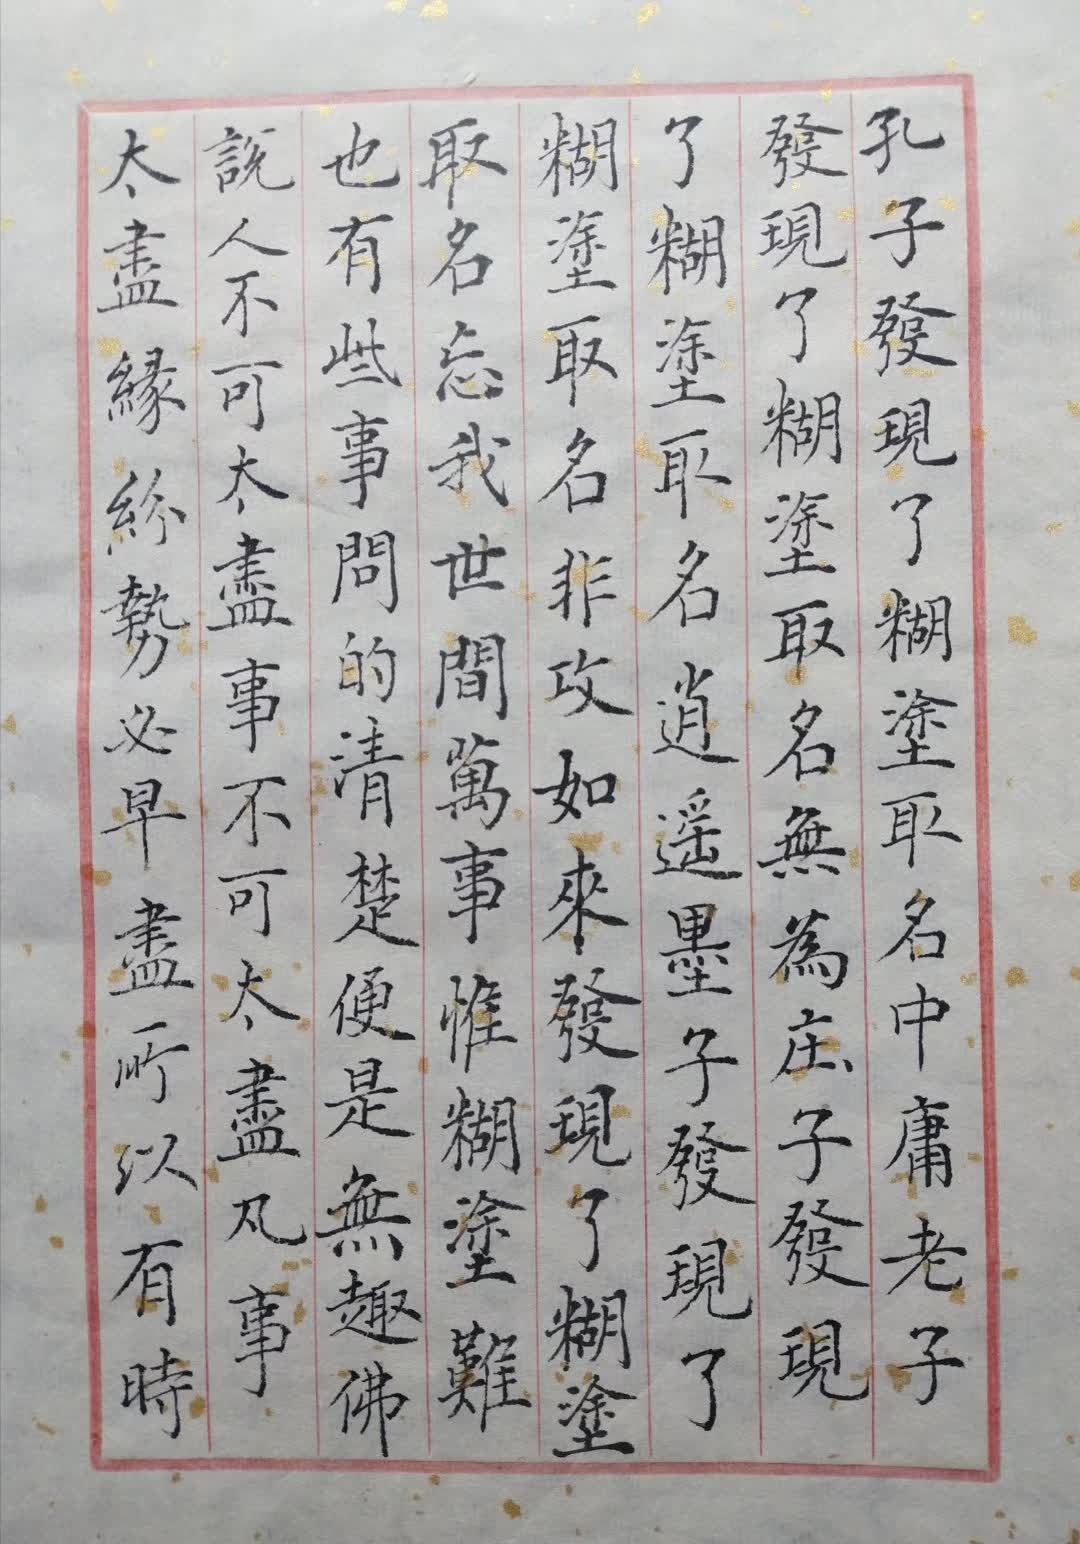 孔子發現了糊塗取名中庸老子
發現了糊塗取名無為庄子發現
了糊塗取名逍遥墨子發現了
糊塗取名非攻如來發現了糊塗
取名忘我世間萬事惟糊塗難
也有些事問的清楚便是無趣佛
說人不可太盡事不可太盡凡事
太盡緣紛勢必早盡所以有時